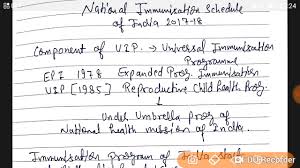 24
National Immunisation Schedule
of India 2017-18
Component of U.I.P. → Universal Immunisation
Programme
EPI 1978 Expanded Prog. Immunisation
UIP [1985] Reproductive Child Health Prog.
↓
Under Umbrella Prog of
National health mission of India.
Immunisation Program of India
DU Recorder